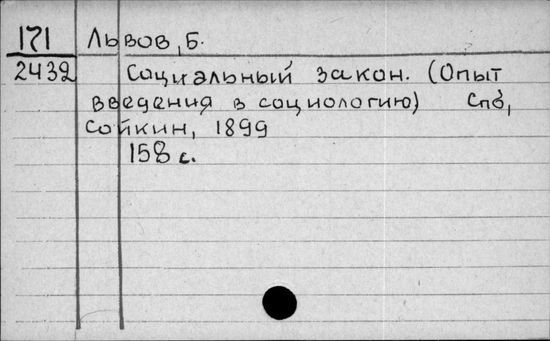 171 Львов, Б.
2432 Социальный закон. (Опыт
введения в социологию) Спб,
Сойкин, 1899
158 с.